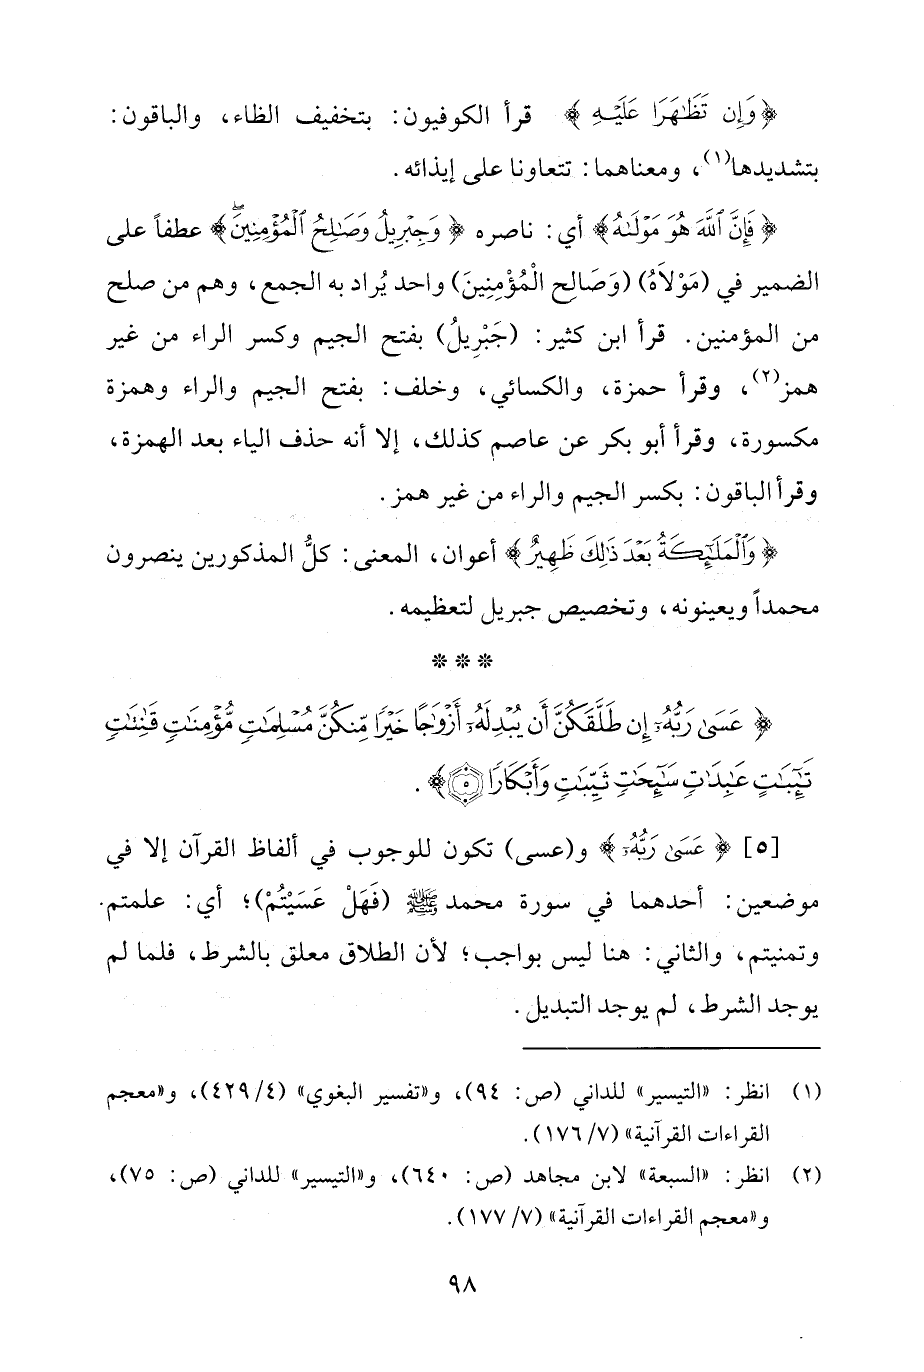 ﴿وَإِن تَظَٰهَرَا عَلَيْهِ﴾ قرأ الكوفيون: بتخفيف الظاء، والباقون:
بتشديدها(١)، ومعناهما: تتعاونا على إيذائه.
﴿فَإِنَّ ٱللَّهَ هُوَ مَوْلَىٰهُ﴾ أي: ناصره ﴿وَجِبْرِيلُ وَصَٰلِحُ ٱلْمُؤْمِنِينَۖ﴾ عطفاً على
الضمير في (مَوْلاَهُ) (وَصَالِح الْمُؤْمِنِينَ) واحد يُراد به الجمع، وهم من صلح
من المؤمنين. قرأ ابن كثير: (جَبْرِيلُ) بفتح الجيم وكسر الراء من غير
همز(٢)، وقرأ حمزة، والكسائي، وخلف: بفتح الجيم والراء وهمزة
مكسورة، وقرأ أبو بكر عن عاصم كذلك، إلا أنه حذف الياء بعد الهمزة،
وقرأ الباقون: بكسر الجيم والراء من غير همز.
﴿وَٱلْمَلَٰٓئِكَةُ بَعْدَ ذَٰلِكَ ظَهِيرٌ﴾ أعوان، المعنى: كلُّ المذكورين ينصرون
محمداً ويعينونه، وتخصيص جبريل لتعظيمه.
* * *
﴿عَسَىٰ رَبُّهُۥٓ إِن طَلَّقَكُنَّ أَن يُبْدِلَهُۥٓ أَزْوَٰجًا خَيْرًا مِّنكُنَّ مُسْلِمَٰتٍ مُّؤْمِنَٰتٍ قَٰنِتَٰتٍ
تَٰٓئِبَٰتٍ عَٰبِدَٰتٍ سَٰٓئِحَٰتٍ ثَيِّبَٰتٍ وَأَبْكَارًا ۝٥﴾.
[٥] ﴿عَسَىٰ رَبُّهُۥٓ﴾ و(عسى) تكون للوجوب في ألفاظ القرآن إلا في
موضعين: أحدهما في سورة محمد ﷺ (فَهَلْ عَسَيْتُمْ)؛ أي: علمتم.
وتمنيتم، والثاني: هنا ليس بواجب؛ لأن الطلاق معلق بالشرط، فلما لم
يوجد الشرط، لم يوجد التبديل.
(١) انظر: «التيسير» للداني (ص: ٩٤)، و«تفسير البغوي» (٤/ ٤٢٩)، و«معجم
القراءات القرآنية» (٧/ ١٧٦).
(٢) انظر: «السبعة» لابن مجاهد (ص: ٦٤٠)، و«التيسير» للداني (ص: ٧٥)،
و«معجم القراءات القرآنية» (٧/ ١٧٧).
٩٨